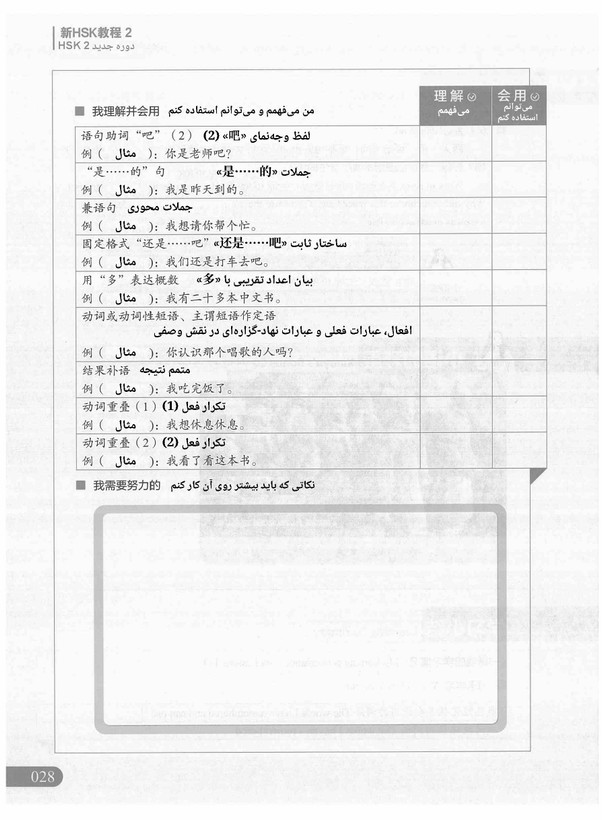 新HSK教程 2
دوره جدید HSK 2
理解 会用
می‌فهمم می‌توانم استفاده کنم
■ 我理解并会用 من می‌فهمم و می‌توانم استفاده کنم
语句助词“吧”（2） لفظ وجه‌نمای «吧» (2)
例（ مثال ）：你是老师吧？
“是……的”句 جملات «是……的»
例（ مثال ）：我是昨天到的。
兼语句 جملات محوری
例（ مثال ）：我想请你帮个忙。
固定格式“还是……吧” ساختار ثابت «还是……吧»
例（ مثال ）：我们还是打车去吧。
用“多”表达概数 بیان اعداد تقریبی با «多»
例（ مثال ）：我有二十多本中文书。
动词或动词性短语、主谓短语作定语
افعال، عبارات فعلی و عبارات نهاد-گزاره‌ای در نقش وصفی
例（ مثال ）：你认识那个唱歌的人吗？
结果补语 متمم نتیجه
例（ مثال ）：我吃完饭了。
动词重叠（1） تکرار فعل (1)
例（ مثال ）：我想休息休息。
动词重叠（2） تکرار فعل (2)
例（ مثال ）：我看了看这本书。
■ 我需要努力的 نکاتی که باید بیشتر روی آن کار کنم
028